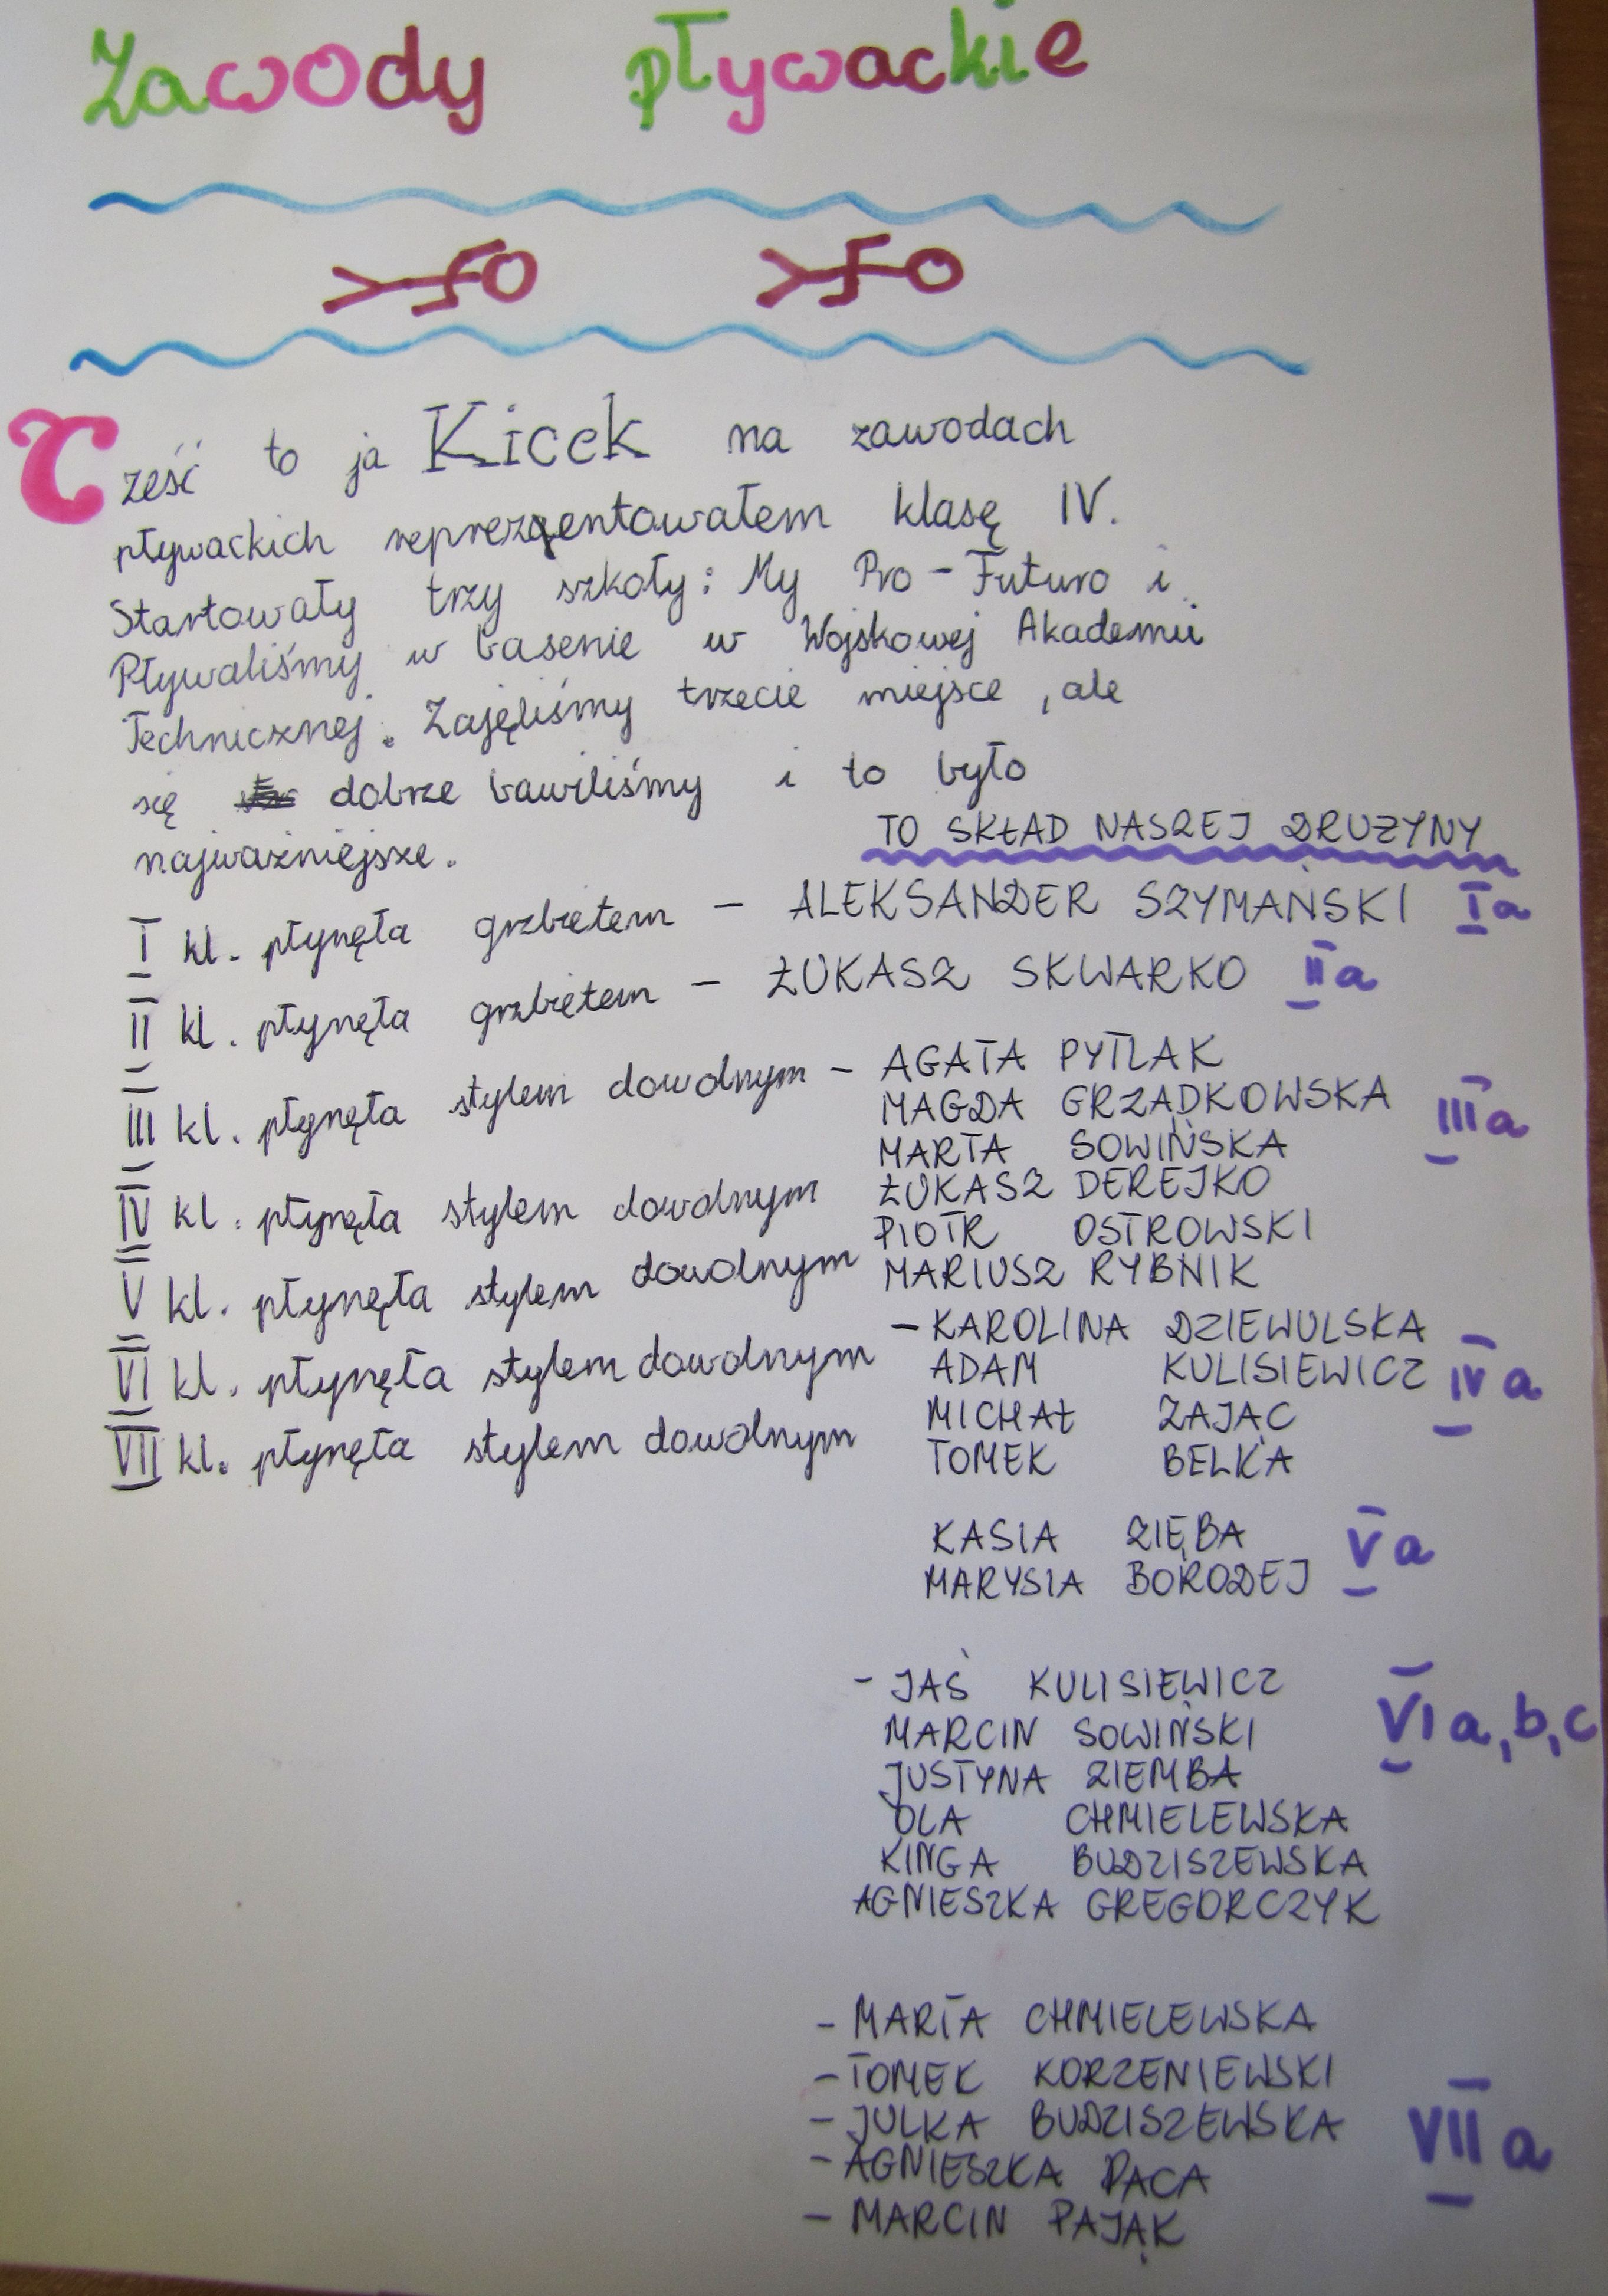 Zawody pływackie
Cześć to ja Kicek na zawodach
pływackich reprezentowałem klasę IV.
Startowały trzy szkoły: My Pro-Futuro i
Pływaliśmy w basenie w Wojskowej Akademii
Technicznej. Zajęliśmy trzecie miejsce, ale
się dobrze bawiliśmy i to było
najważniejsze.
TO SKŁAD NASZEJ DRUŻYNY
I kl. płynęła grzbietem – ALEKSANDER SZYMAŃSKI Ia
II kl. płynęła grzbietem – ŁUKASZ SKWARKO IIa
III kl. płynęła stylem dowolnym – AGATA PYTLAK
MAGDA GRZĄDKOWSKA IIIa
MARTA SOWIŃSKA
IV kl. płynęła stylem dowolnym ŁUKASZ DEREJKO
PIOTR OSTROWSKI
V kl. płynęła stylem dowolnym MARIUSZ RYBNIK
– KAROLINA DZIEWULSKA
VI kl. płynęła stylem dowolnym ADAM KULISIEWICZ IVa
MICHAŁ ZAJĄC
VII kl. płynęła stylem dowolnym TOMEK BELKA
KASIA ZIĘBA Va
MARYSIA BORODEJ
- JAŚ KULISIEWICZ
MARCIN SOWIŃSKI VIa,b,c
JUSTYNA ZIEMBA
OLA CHMIELEWSKA
KINGA BUDZISZEWSKA
AGNIESZKA GREGORCZYK
- MARTA CHMIELEWSKA
- TOMEK KORZENIEWSKI
- JULKA BUDZISZEWSKA VIIa
- AGNIESZKA PACA
- MARCIN PAJĄK